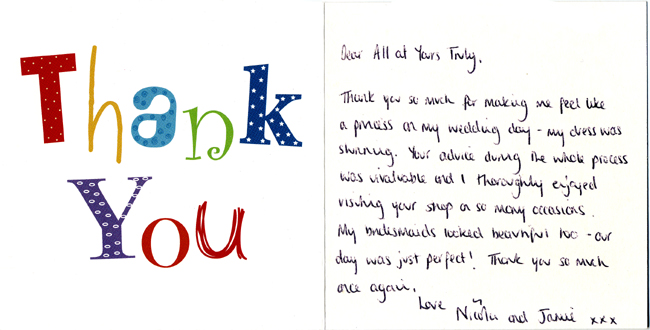 Thank
You
Dear All at Yours Truly,
Thank you so much for making me feel like
a princess on my wedding day - my dress was
stunning. Your advice during the whole process
was invaluable and I thoroughly enjoyed
visiting your shop on so many occasions.
My bridesmaids looked beautiful too - our
day was just perfect! Thank you so much
once again.
Love
Nicola and Jamie xxx